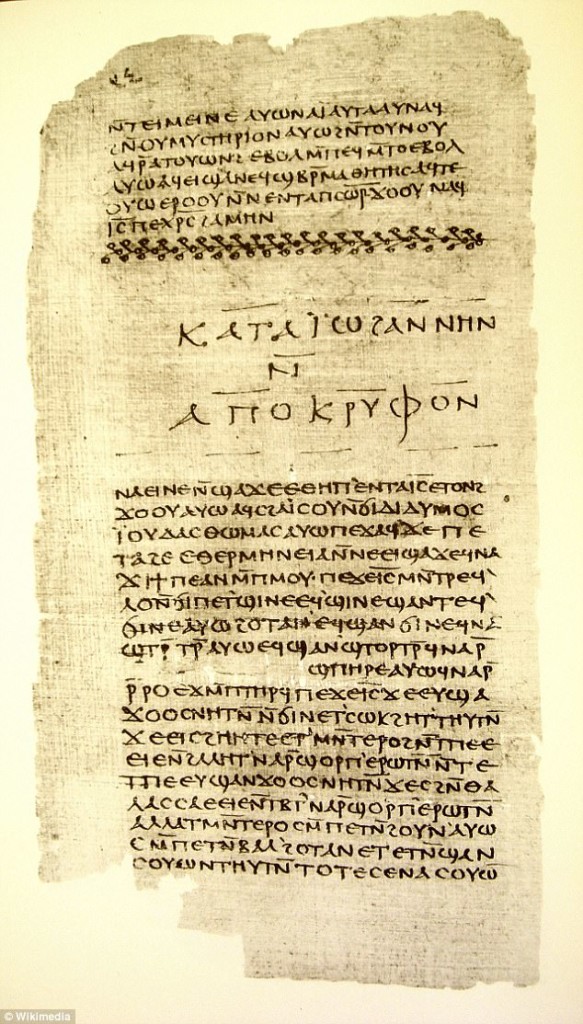 ⲛ̄ⲧⲉⲓⲙⲉⲓⲛⲉ ⲁⲩⲱ ⲛⲁⲓ ⲁⲩⲧⲁⲁⲩ ⲛⲁϥ
ϩⲛ̄ ⲟⲩⲙⲩⲥⲧⲏⲣⲓⲟⲛ ⲁⲩⲱ ϩⲛ̄ⲧⲟⲩⲛⲟⲩ
ⲁϥⲣ̄ⲁⲧⲟⲩⲱⲛϩ ⲉⲃⲟⲗ ⲙ̄ⲡⲉϥⲙ̄ⲧⲟ ⲉⲃⲟⲗ
ⲁⲩⲱ ⲁϥⲉⲓ ϣⲁ ⲛⲉϥϣⲃⲣ̄ⲙⲁⲑⲏⲧⲏⲥ ⲁϥⲧⲉ
ⲟⲩⲱ ⲉⲣⲟⲟⲩ ⲛ̄ⲛⲉⲛⲧⲁⲡⲥⲱⲣ̄ ϫⲟⲟⲩ ⲛⲁϥ
ⲓ̄ⲥ̄ ⲡⲉⲭ̄ⲣ̄ⲥ̄ ϩⲁⲙⲏⲛ
ⲕⲁⲧⲁ ⲓ̈ⲱϩⲁⲛⲛⲏⲛ
ⲛ̄
ⲁⲡⲟⲕⲣⲩⲫⲟⲛ
ⲛⲁⲉⲓ ⲛⲉ ⲛ̄ϣⲁϫⲉ ⲉⲑⲏⲡ ⲉⲛⲧⲁⲓ̄ⲥ̄ ⲉⲧⲟⲛϩ
ϫⲟⲟⲩ ⲁⲩⲱ ⲁϥⲥϩⲁⲓ̈ⲥⲟⲩ ⲛ̄ϭⲓ ⲇⲓⲇⲩⲙⲟⲥ
ⲓ̈ⲟⲩⲇⲁⲥ ⲑⲱⲙⲁⲥ ⲁⲩⲱ ⲡⲉϫⲁϥ ϫⲉ ⲡⲉ
ⲧⲁϩⲉ ⲉⲑⲉⲣⲙⲏⲛⲉⲓⲁ ⲛ̄ⲛⲉⲉⲓϣⲁϫⲉ ϥⲛⲁ
ϫⲓ ϯⲡⲉ ⲁⲛ ⲙ̄ⲡⲙⲟⲩ· ⲡⲉϫⲉ ⲓ̄ⲥ̄ ⲙⲛ̄ⲧⲣⲉϥ
ⲗⲟ ⲛ̄ϭⲓ ⲡⲉⲧϣⲓⲛⲉ ⲉϥϣⲓⲛⲉ ϣⲁⲛⲧⲉϥ
ϭⲓⲛⲉ ⲁⲩⲱ ϩⲟⲧⲁⲛ ⲉϥϣⲁⲛϭⲓⲛⲉ ϥⲛⲁ
ϣⲧⲣ̄ⲧⲣ̄ ⲁⲩⲱ ⲉϥϣⲁⲛϣⲧⲟⲣⲧⲣ̄ ϥⲛⲁⲣ̄
ϣⲡⲏⲣⲉ ⲁⲩⲱ ϥⲛⲁⲣ̄
ⲣ̄ⲣⲟ ⲉϫⲙ̄ ⲡⲧⲏⲣϥ ⲡⲉϫⲉ ⲓ̄ⲥ̄ ϫⲉ ⲉⲩϣⲁ
ϫⲟⲟⲥ ⲛⲏⲧⲛ̄ ⲛ̄ϭⲓ ⲛⲉⲧⲥⲱⲕ ϩⲏⲧ ⲧⲏⲩⲧⲛ̄
ϫⲉ ⲉⲓⲥϩⲏⲏⲧⲉ ⲉⲧⲙⲛ̄ⲧⲉⲣⲟ ϩⲛ̄ ⲧⲡⲉ ⲉ
ⲉⲓⲉ ⲛ̄ϩⲁⲗⲏⲧ ⲛⲁⲣ̄ϣⲟⲣⲡ ⲉⲣⲱⲧⲛ̄ ⲛ̄ⲧⲉ
ⲧⲡⲉ ⲉⲩϣⲁⲛϫⲟⲟⲥ ⲛⲏⲧⲛ̄ ϫⲉ ⲥϩⲛ̄ ⲑⲁ
ⲗⲁⲥⲥⲁ ⲉⲉⲓⲉ ⲛ̄ⲧⲃⲧ ⲛⲁⲣ̄ϣⲟⲣⲡ ⲉⲣⲱⲧⲛ̄
ⲁⲗⲗⲁ ⲧⲙⲛ̄ⲧⲉⲣⲟ ⲥⲙ̄ⲡⲉⲧⲛ̄ϩⲟⲩⲛ ⲁⲩⲱ
ⲥⲙ̄ⲡⲉⲧⲛ̄ⲃⲁⲗ ϩⲟⲧⲁⲛ ⲉⲧⲉⲧⲛ̄ϣⲁⲛ
ⲥⲟⲩⲱⲛ ⲧⲏⲩⲧⲛ̄ ⲧⲟⲧⲉ ⲥⲉⲛⲁⲥⲟⲩⲱ
© Wikimedia